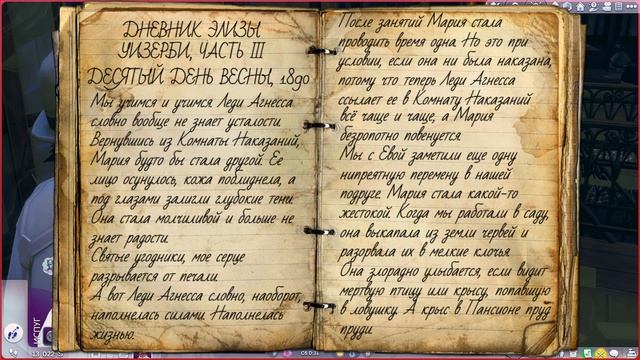 ДНЕВНИК ЭЛИЗЫ
УИЗЕРБИ, ЧАСТЬ III
ДЕСЯТЫЙ ДЕНЬ ВЕСНЫ, 1890
Мы учимся и учимся Леди Агнесса
словно вообще не знает усталости.
Вернувшись из Комнаты Наказаний,
Мария будто бы стала другой. Ее
лицо осунулось, кожа поблиднела, а
под глазами залигли глубокие тени.
Она стала молчиливой и больше не
знает радости.
Святые угодники, мое серце
разрывается от печали.
А вот Леди Агнесса словно, наоборот,
наполнелась силами. Наполнелась
жизнью.
После занятий Мария стала
проводить время одна. Но это при
условии, если она ни была наказана,
потому что теперь Леди Агнесса
ссылает ее в Комнату Наказаний
всё чаще и чаще, а Мария
безропотно повенуется.
Мы с Евой заметили еще одну
нипреятную перемену в нашей
подруге. Мария стала какой-то
жестокой. Когда мы работали в саду,
она выкапала из земли червей и
разорвала их в мелкие клочья.
Она злорадно улыбается, если видит
мертвую птицу или крысу, попавшую
в ловушку. А крыс в Пансионе пруд
пруди.
ИСПУГ
13 022
Сб 0:31